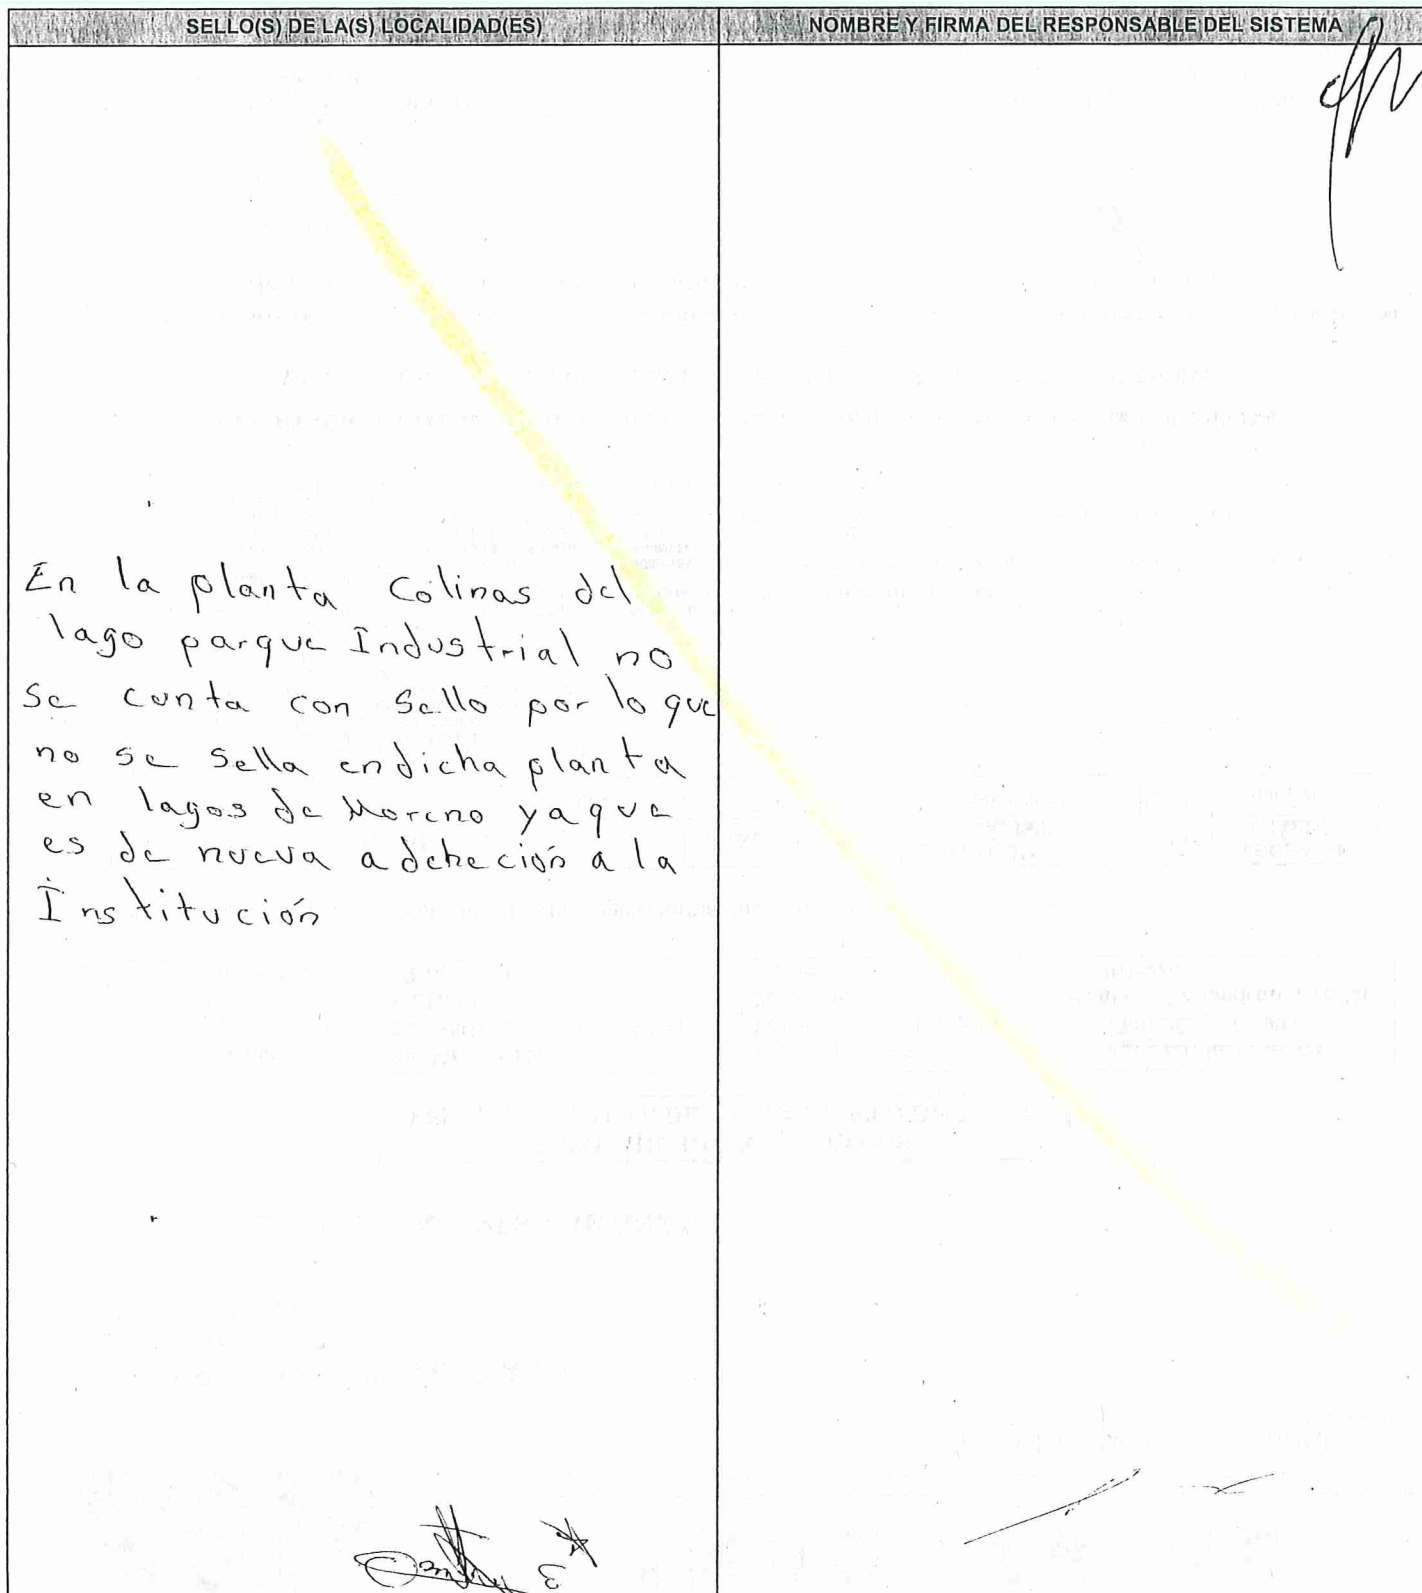 SELLO(S) DE LA(S) LOCALIDAD(ES)
NOMBRE Y FIRMA DEL RESPONSABLE DEL SISTEMA
En la planta Colinas del
lago parque Industrial no
se cunta con Sello por lo que
no se Sella en dicha planta
en lagos de Moreno ya que
es de nueva adeheción a la
Institución